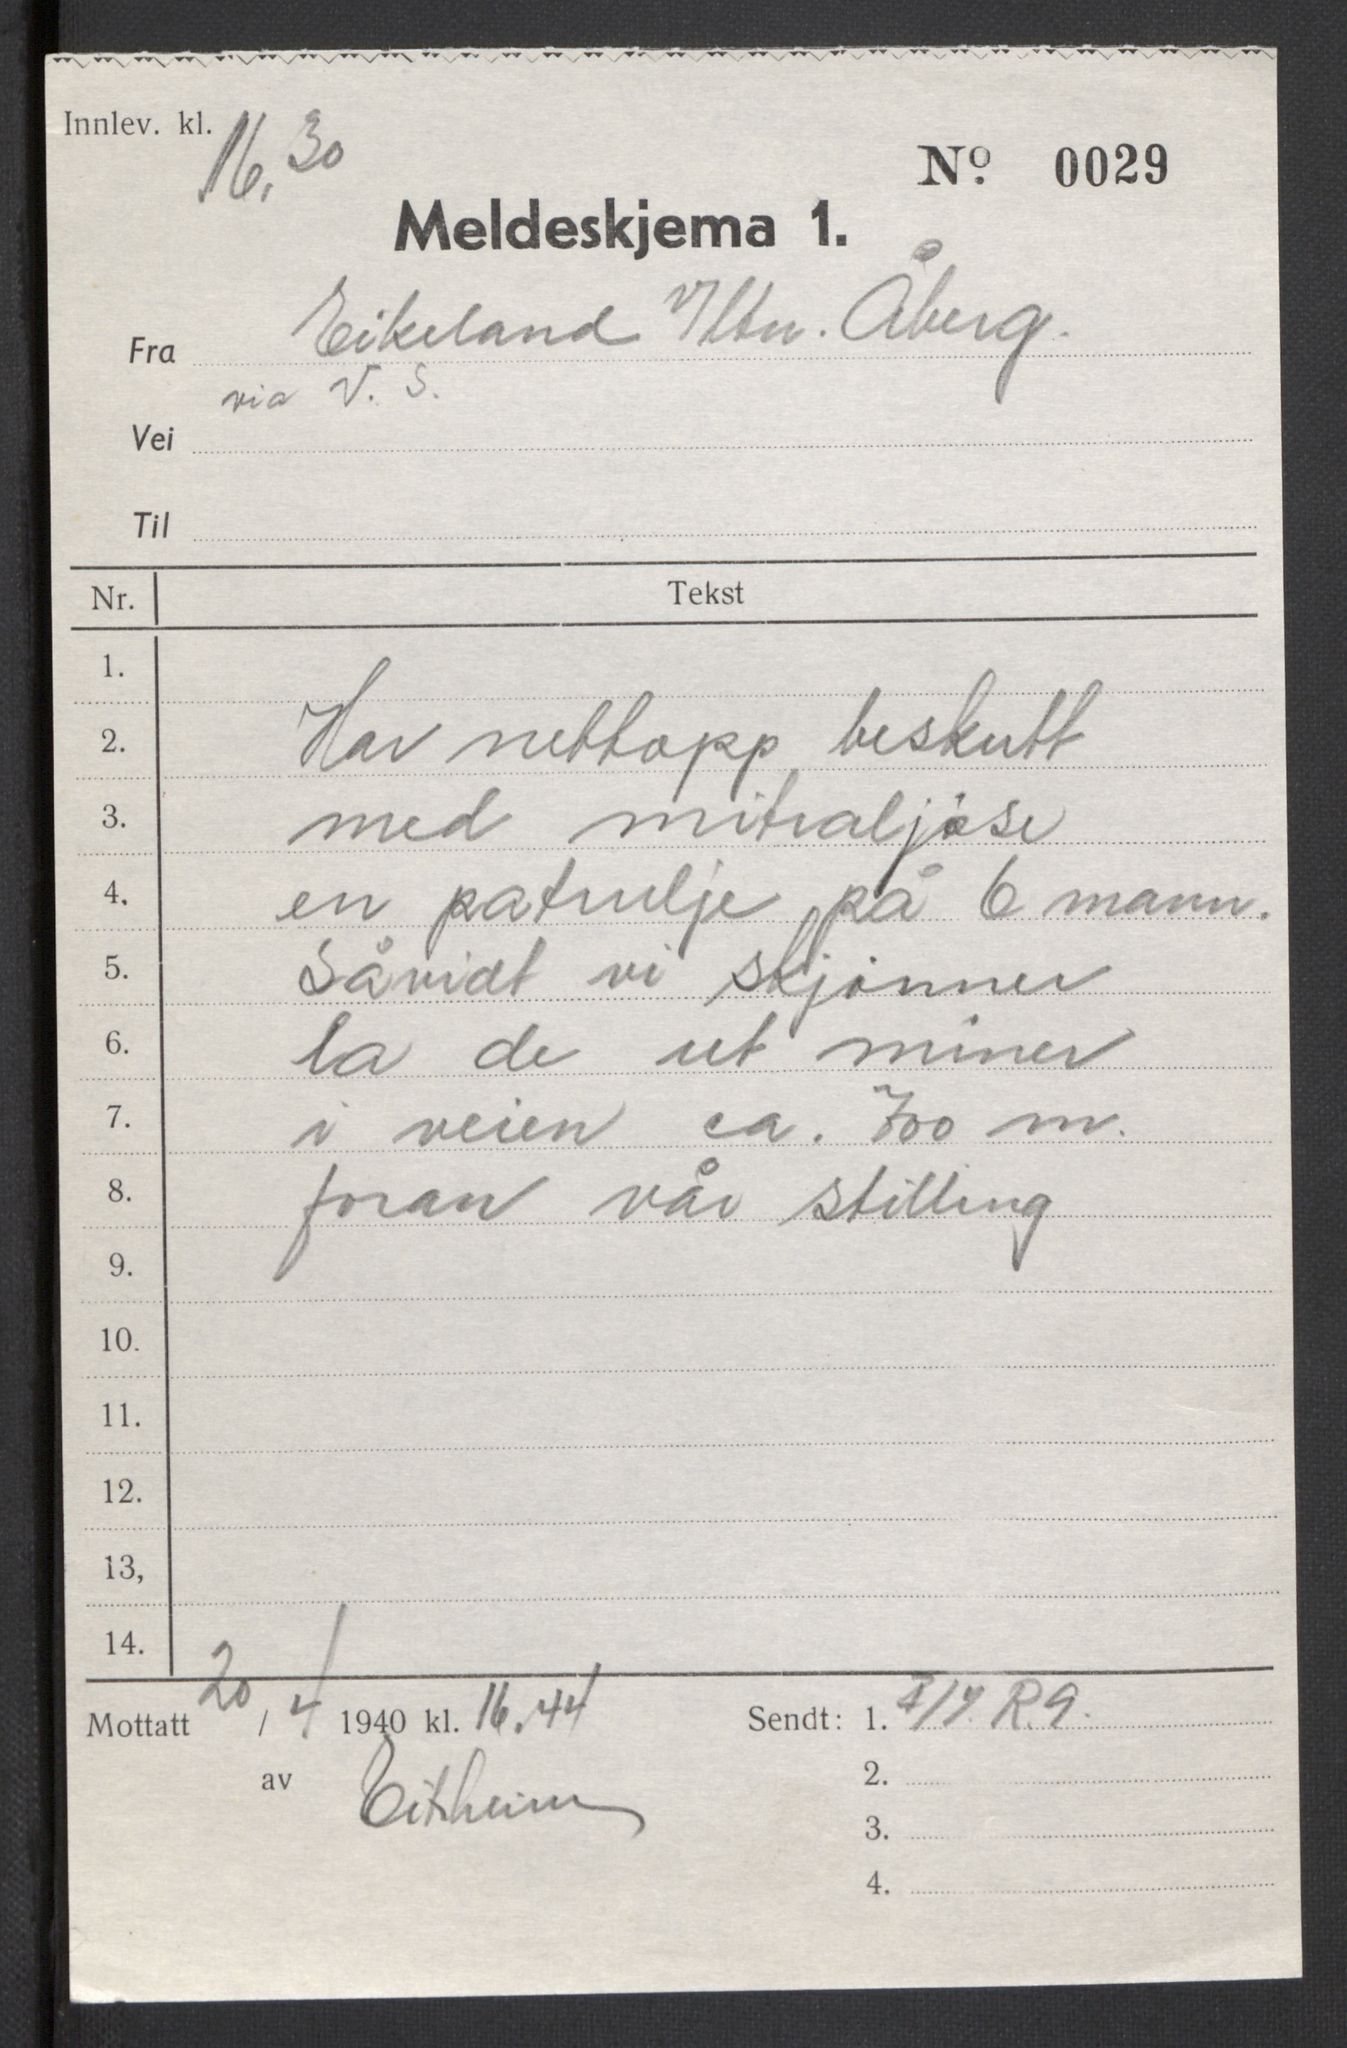 Innlev. kl. 16.30
Nº 0029
Meldeskjema 1.
Fra Eikeland v/ltn. Åberg.
via V. S.
Vei
Til
Nr. Tekst
1.
2. Har nettopp beskutt
3. med mitraljøse
4. en patrulje på 6 mann.
5. Såvidt vi skjønner
6. la de ut miner
7. i veien ca. 700 m.
8. foran vår stilling
9.
10.
11.
12.
13,
14.
Mottatt 20 / 4 1940 kl. 16.44 Sendt: 1. R.9.
av Eitrheim 2.
3.
4.